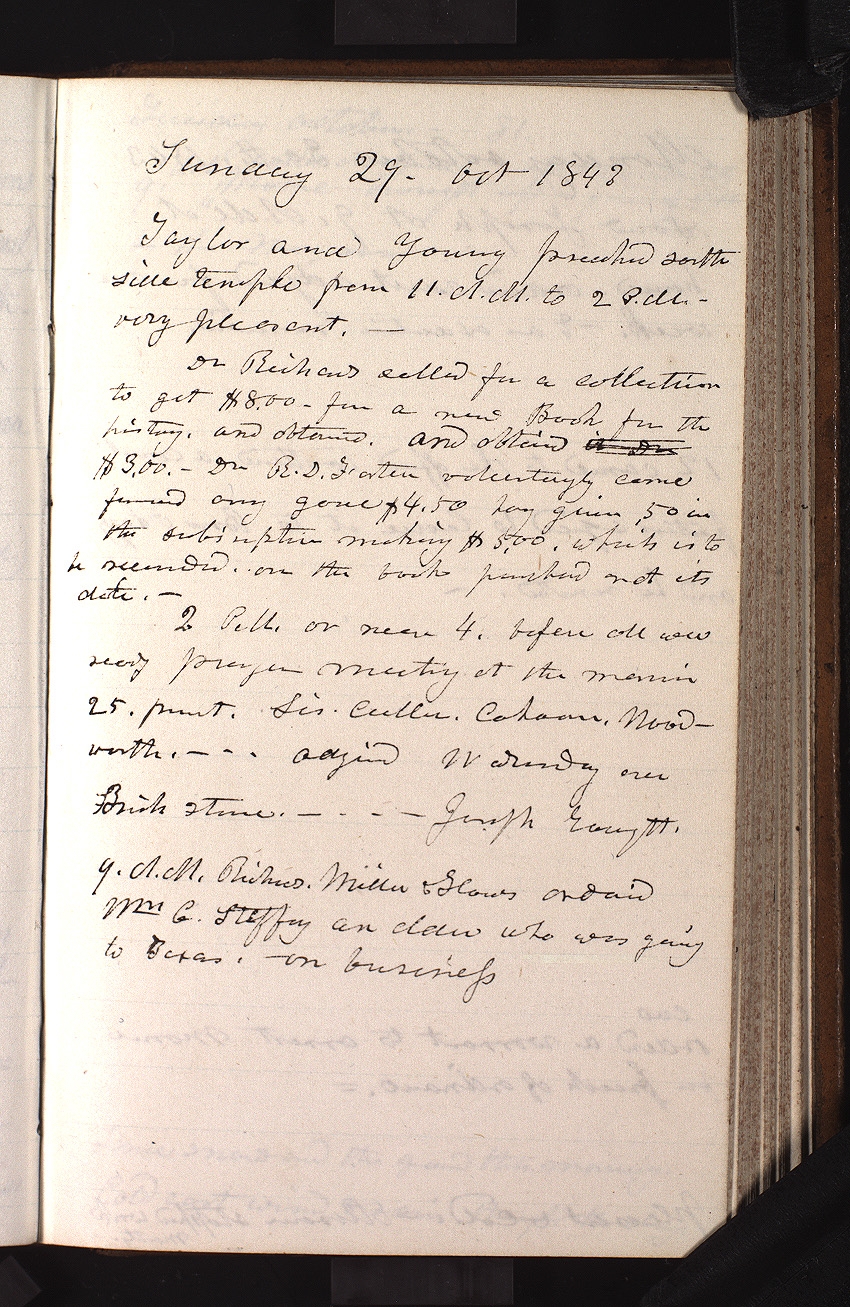 Sunday 29. Oct 1843
Taylor and Young preached south
side temple from 11. A.M. to 2 P.M.-
very pleasant. —
Dr Richards called for a collection
to get $8.00- for a new Book for the
history. and obtained. and obtaind
$3.00.- Dr R.D. Foster voluntarily came
forward any gave $4.50 hag given ,50 in
the subsiription making $5,00. which is to
be recorded. on the book purchad and its
date. —
2 P.M. or near 4. before all wer
ready prayer meeting at the mansin
25. presnt. Sis. Cutler. Cahoon. Wood-
worth. - - - adgind Wednesday eve
Brick store. — - - — Joseph taught.
9. A.M. Richds. Miller & Haws ordaid
Wm C. Steffey an elder who was going
to Texas. - on business